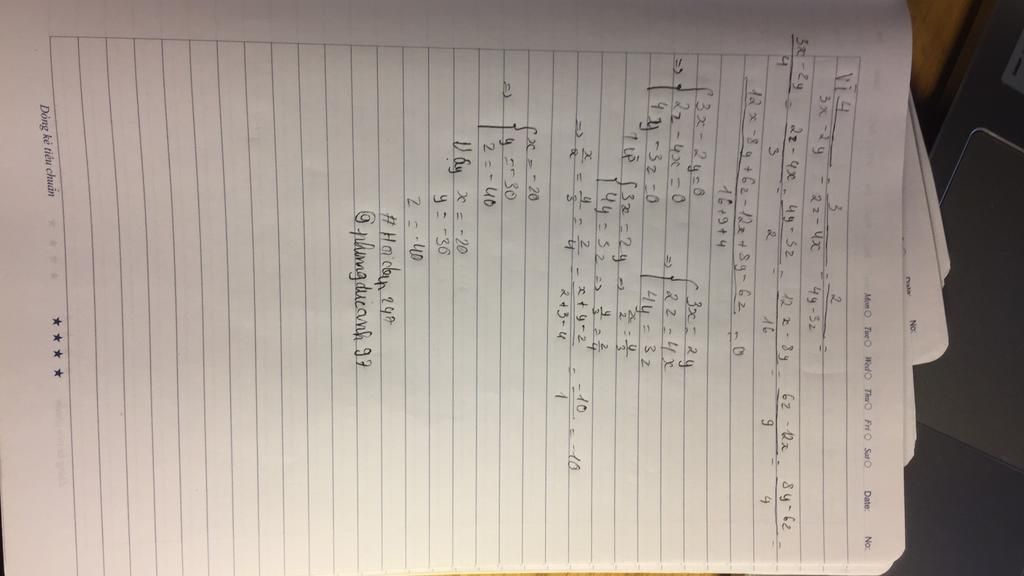 No:
Date:
No:
Mon Tue Wed Thu Fri Sat Date:
Vì 4/(3x-2y) = 3/(2z-4x) = 2/(4y-3z) =
(3x-2y)/4 = (2z-4x)/3 = (4y-3z)/2 = (12x-8y)/16 = (6z-12x)/9 = (8y-6z)/4 =
(12x-8y+6z-12x+8y-6z)/(16+9+4) = 0
=> { 3x-2y=0 ; 2z-4x=0 ; 4y-3z=0 => { 3x=2y ; 2z=4x ; 4y=3z
Từ { 3x=2y ; 4y=3z => x/2=y/3 ; => y/3=z/4
=> x/2 = y/3 = z/4 = (x+y-z)/(2+3-4) = -10/1 = -10
=> { x=-20 ; y=-30 ; z=-40
Vậy x=-20
y=-30
z=-40
#Hoidap247
@phungducanh97
Dòng kẻ tiêu chuẩn